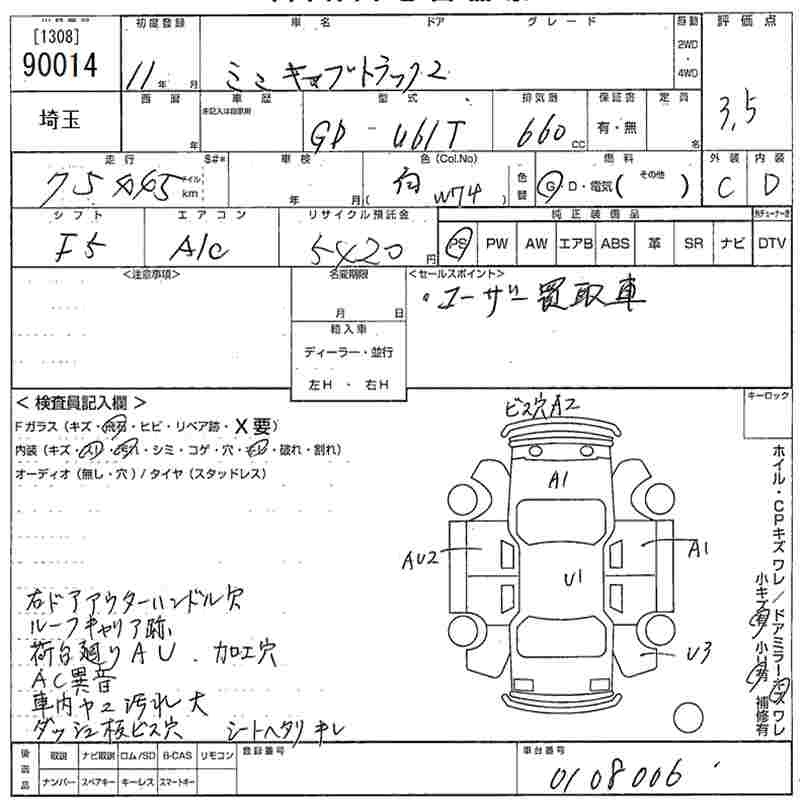 [1308]
90014
初度登録 車名 ドア グレード 駆動 評価点
11年 月 ミニキャブトラック2 2WD・4WD 3,5
埼玉
西暦 車歴 型式 排気器 保証書 定員
未記入は自家用
年 GD - U61T 660 CC 有・無 名
走行 S#* 車検 色(Col.No) 色替 燃料 外装 内装
km 年 月 ( 白 W74 ) G・D・電気( その他 ) C D
シフト エアコン リサイクル預託金 純正装備品
F5 A/C 5420円 PS PW AW エアB ABS 革 SR ナビ DTV
<注意事項> 名変期限 <セールスポイント>
月 日 ・ユーザー買取車
輸入車
ディーラー・並行
左H ・ 右H
< 検査員記入欄 >
Fガラス(キズ・飛石・ヒビ・リペア跡・X要)
内装(キズ・スリ・汚れ・シミ・コゲ・穴・破れ・割れ)
オーディオ(無し・穴)/タイヤ(スタッドレス)
キーロック
ビス穴A2
A1
AU2
A1
U1
U3
ホイル・CPキズ ワレ/ドアミラーキズ ワレ
小キズ有 小U有 補修有
右ドアアウターハンドル穴
ルーフキャリア跡
荷台廻りAU、加工穴
AC異音
車内ヤニ汚れ大
ダッシュ板ビス穴 シートヘタリ キレ
後商品 取説 ナビ取説 ロム/SD B-CAS リモコン 登録番号 車台番号
ナンバー スペアキー キーレス スマートキー 0108006